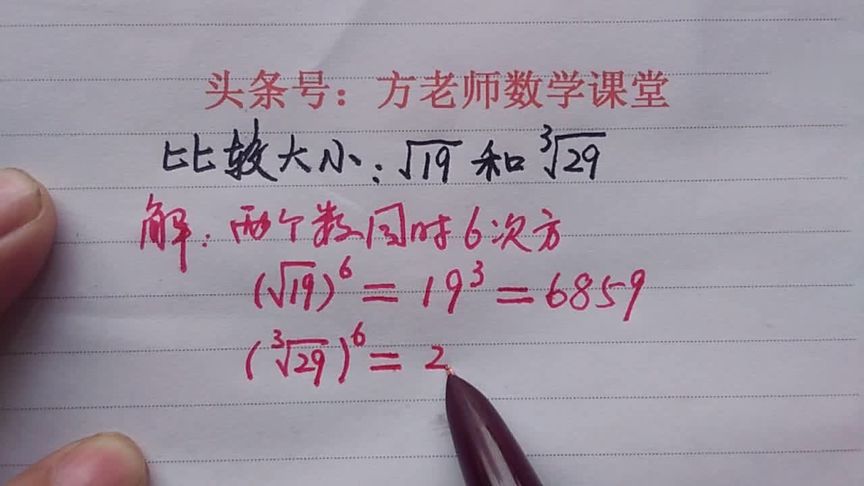 头条号：方老师数学课堂
比较大小：√19 和 ³√29
解：两个数同时6次方
(√19)⁶ = 19³ = 6859
(³√29)⁶ = 2